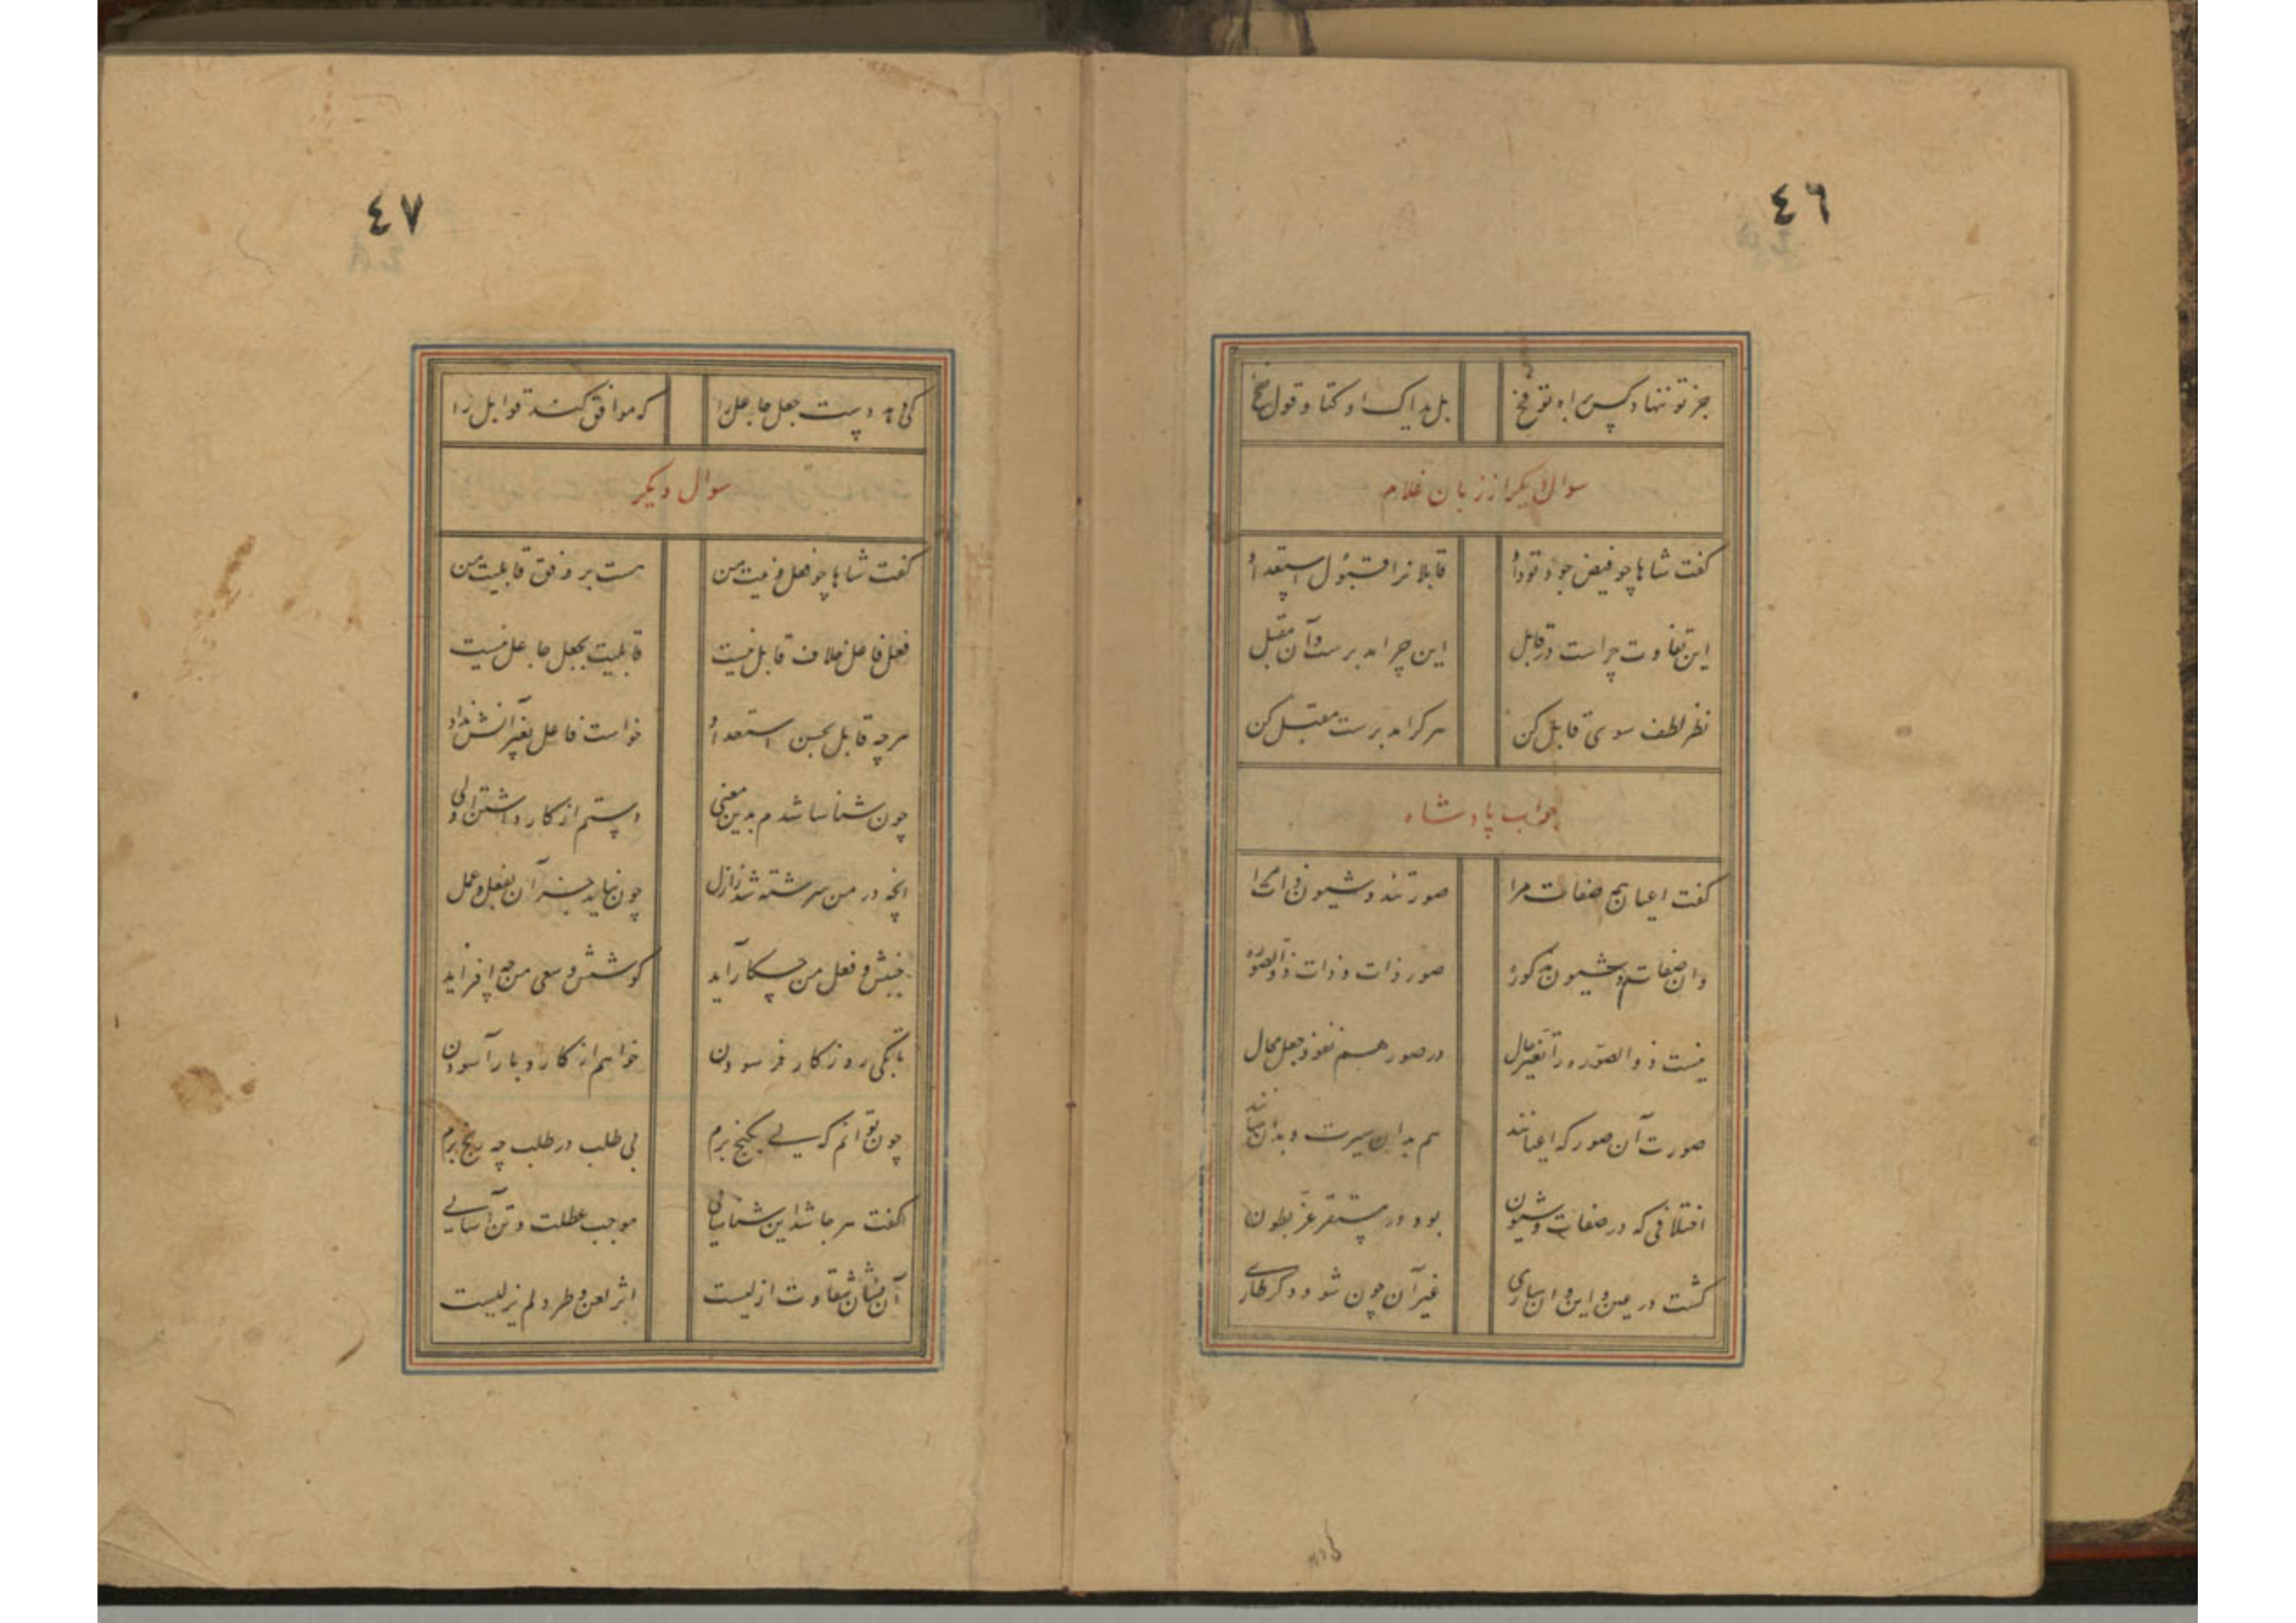 ٤٦
جز تو ننهاد کس براه تو فخ بل یداک اوکتا و فوک نفخ
سوال دیکر از زبان غلام
کفت شاها چو فیض جود تو داد قابلانرا قبول استعداد
این تفاوت چراست در قابل این چرا مدبرست وآن مقبل
نظر لطف سوی قابل کن هر کرا مدبرست مقبل کن
جواب پادشاه
کفت اعیان هم صفات مرا صورتند و شیون ذات مرا
وان صفات و شیون مذکوره صور ذات و ذات ذو الصوره
نیست ذو الصور در تغیر حال در صور هم نفوذ جعل محال
صورت آن صور که اعیانند هم بدان سیرت و بدان سانند
اختلافی که در صفات و شیون بود در مستقر غر بطون
کشت در عین این و آن ساری غیر آن چون شود دکر طاری
٤٧
کی بود دست جعل جاعل را که موافق کند قوابل را
سوال دیکر
کفت شاها چو فعل و نیت من هست بر وفق قابلیت من
فعل فاعل خلاف قابل نیست قابلیت بجعل جاعل نیست
هرچه قابل بحسن استعداد خواست فاعل بغیر آنش نداد
چون شناسا شدم بدین معنی دستم از کار داشتن اولی
انچه در من سرشته شد ز ازل چون نیاید جز آن بفعل و عمل
جنبش و فعل من چکار آید کوشش و سعی من چه افزاید
تا بکی روزکار فرسودن خواهم از کار و بار آسودن
چون توانم که پی بکنج برم بی طلب در طلب چه رنج برم
کفت هر جا شد این شناسایی موجب عطلت و تن آسایی
آن نشان شقاوت ازلیست اثر لعن و طرد لم یزلیست